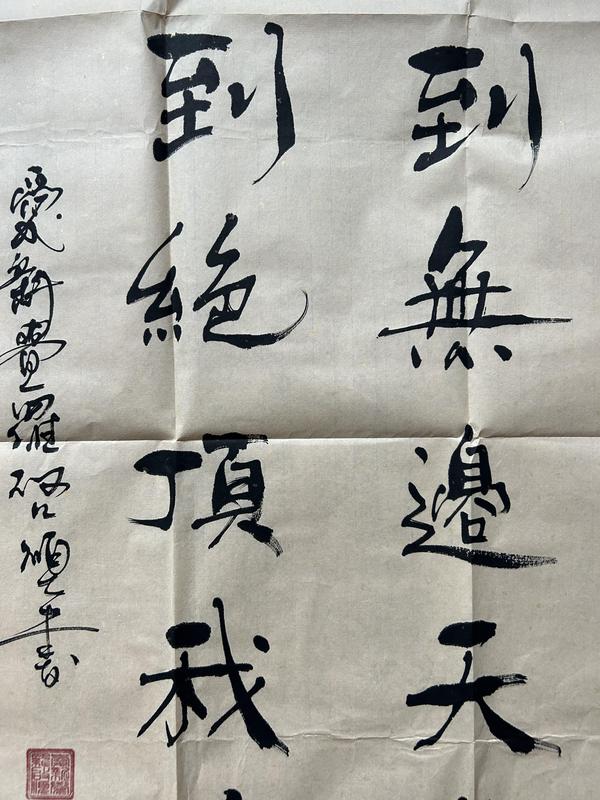 到無邊天
到絕頂我
愛新覺羅啓 書